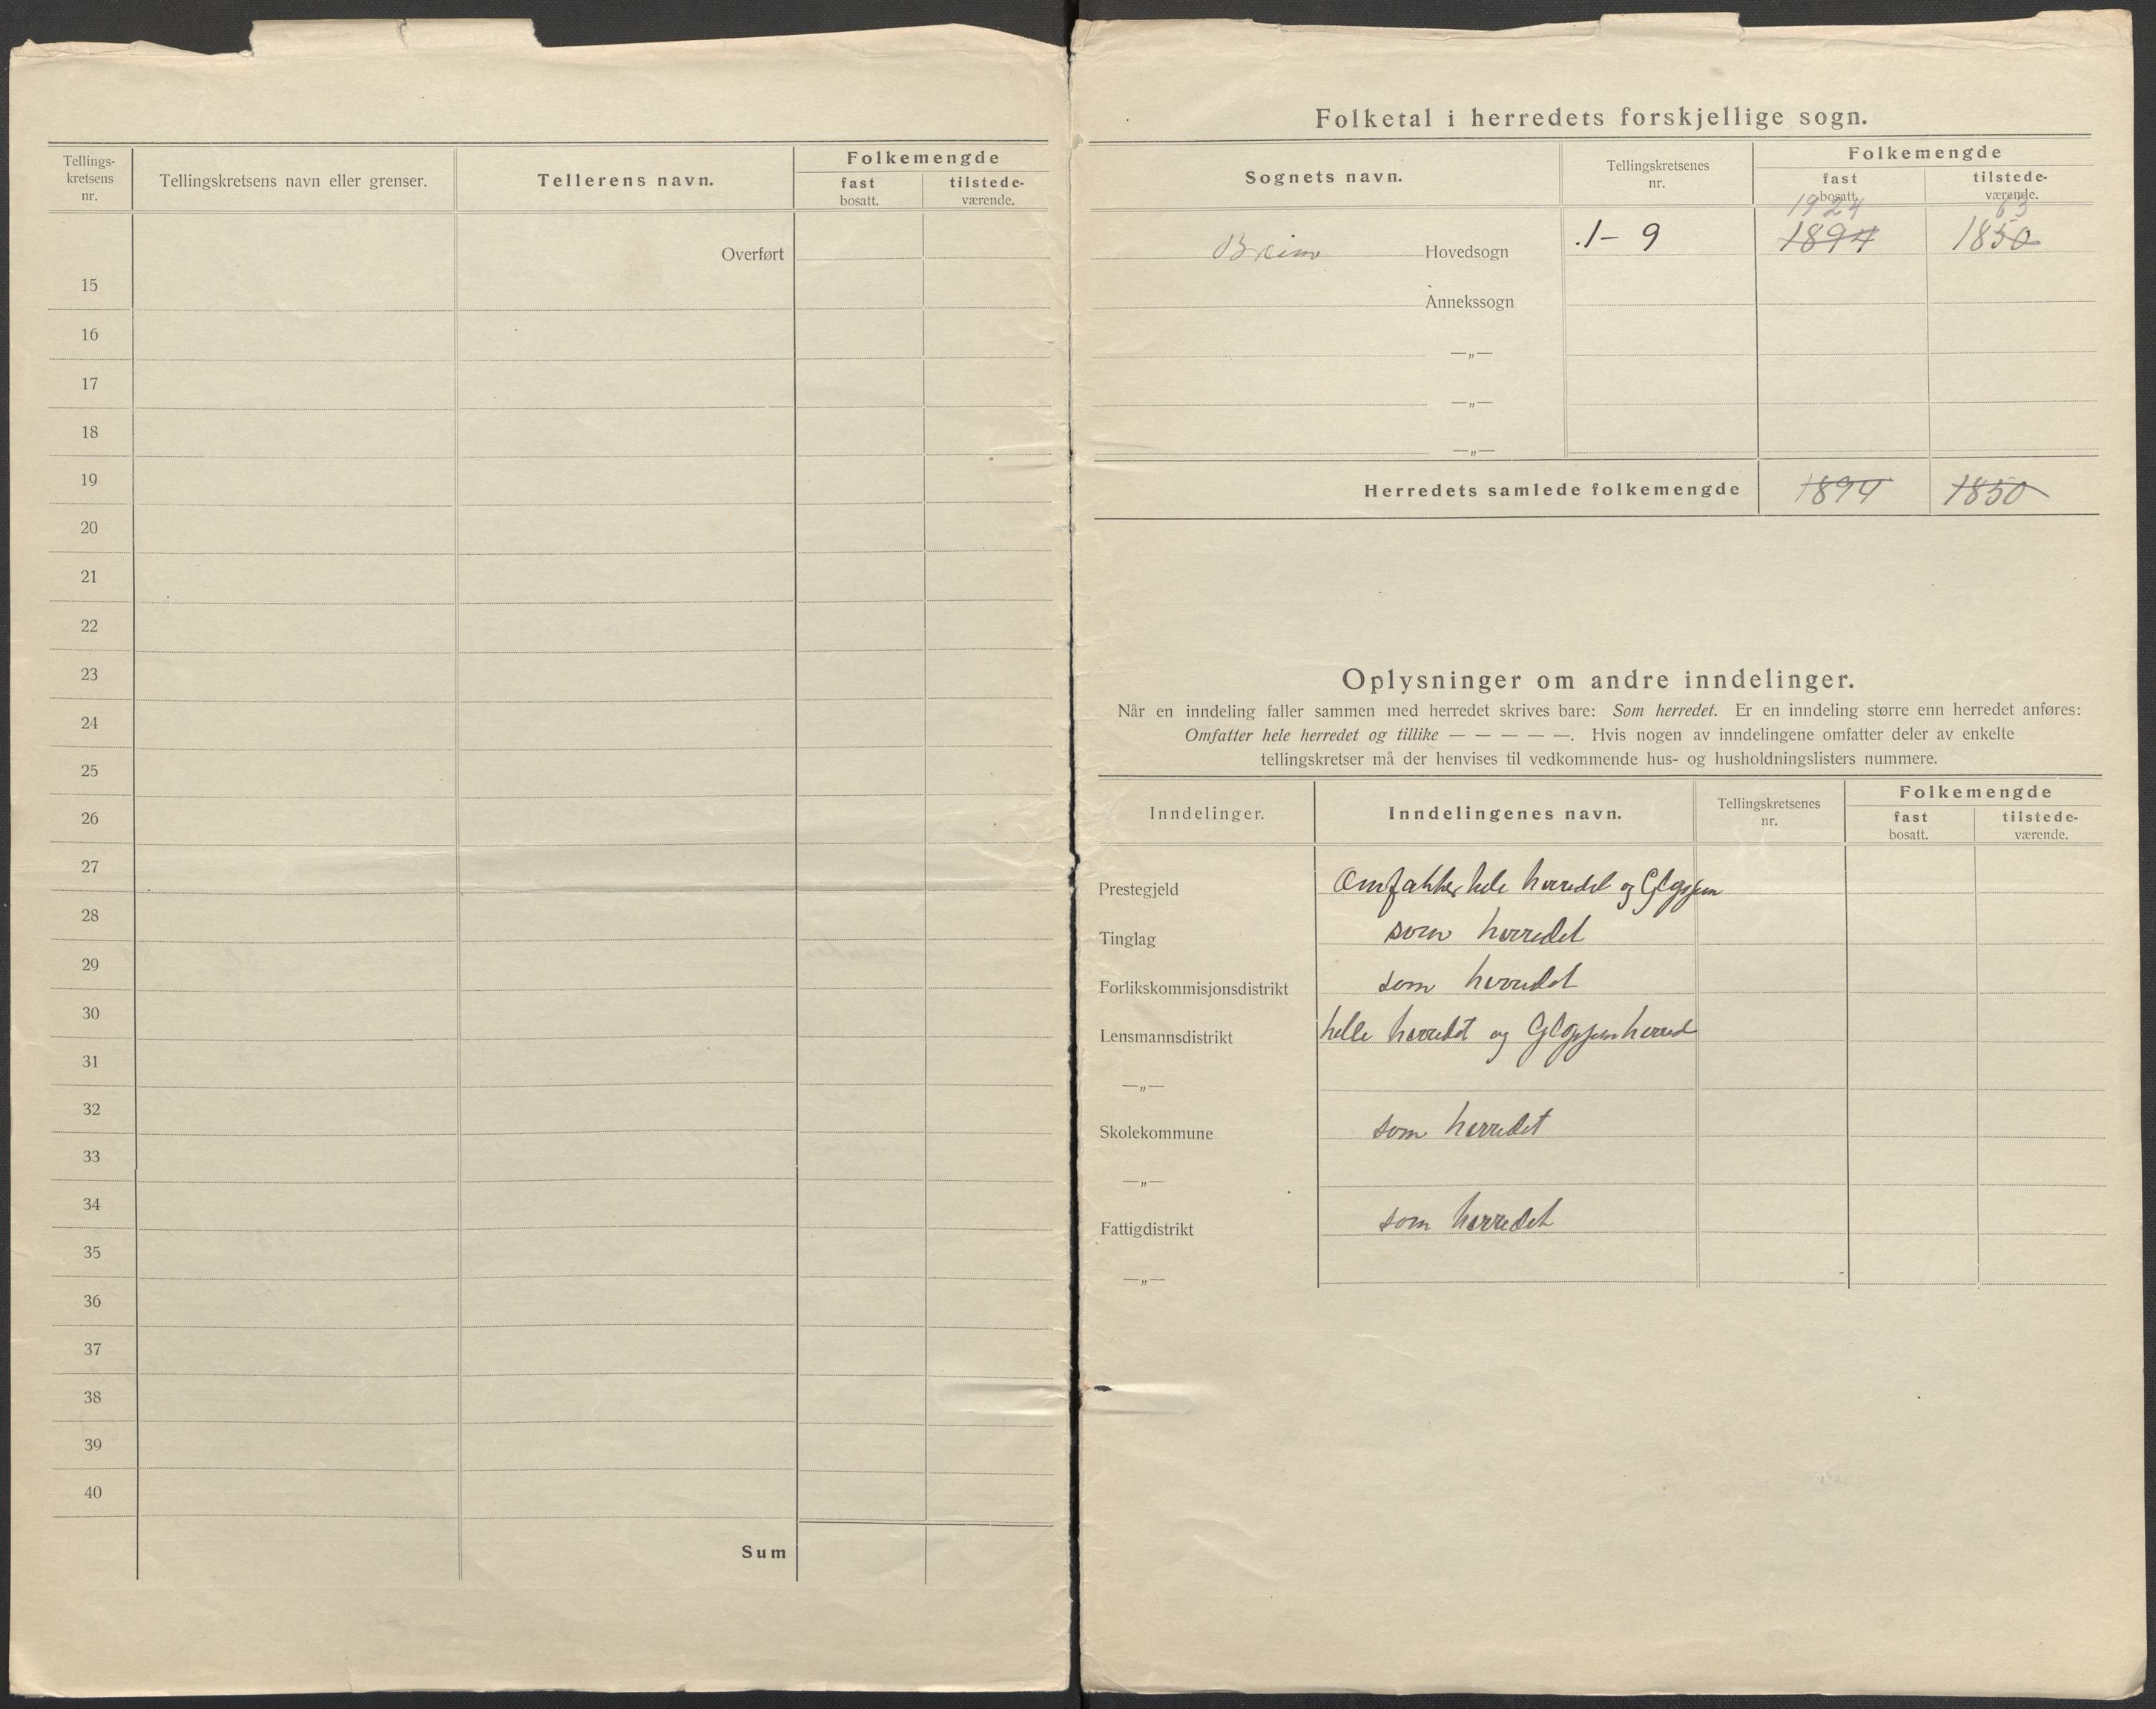 Tellings-
kretsens
nr.
Tellingskretsens navn eller grenser.
Tellerens navn.
Folkemengde
fast
bosatt.
tilstede-
værende.
Overført
15
16
17
18
19
20
21
22
23
24
25
26
27
28
29
30
31
32
33
34
35
36
37
38
39
40
Sum
Folketal i herredets forskjellige sogn.
Sognets navn.
Tellingskretsenes
nr.
Folkemengde
fast
bosatt.
tilstede-
værende.
1924 63
Breim Hovedsogn 1-9 1894 1850
Annekssogn
—„—
—„—
—„—
Herredets samlede folkemengde 1894 1850
Oplysninger om andre inndelinger.
Når en inndeling faller sammen med herredet skrives bare: Som herredet. Er en inndeling større enn herredet anføres:
Omfatter hele herredet og tillike — — — — —. Hvis nogen av inndelingene omfatter deler av enkelte
tellingskretser må der henvises til vedkommende hus- og husholdningslisters nummere.
Inndelinger.
Inndelingenes navn.
Tellingskretsenes
nr.
Folkemengde
fast
bosatt.
tilstede-
værende.
Prestegjeld Omfatter hele herredet og Gloppen
Tinglag som herredet
Forlikskommisjonsdistrikt som herredet
Lensmannsdistrikt helle herredet og Gloppen herred
—„—
Skolekommune som herredet
—„—
Fattigdistrikt som herredet
—„—